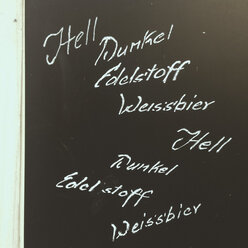 Hell
Dunkel
Edelstoff
Weissbier
Hell
Dunkel
Edelstoff
Weissbier